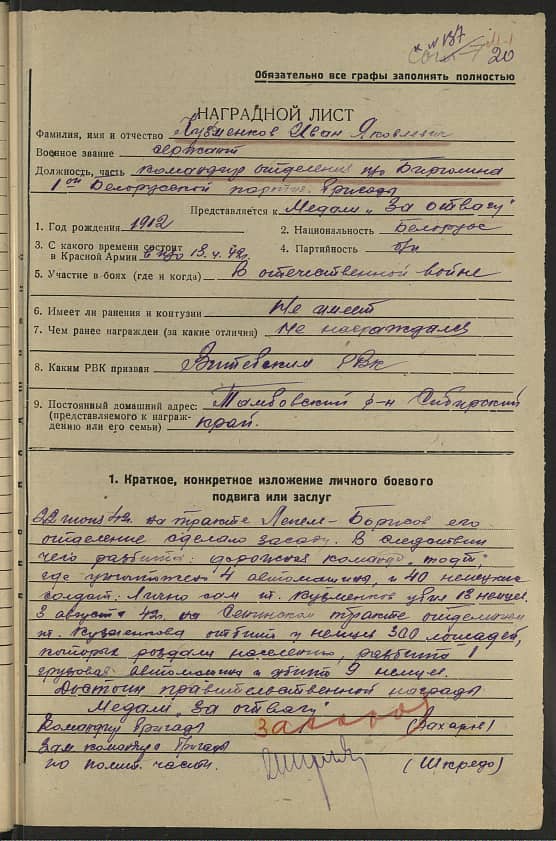 № 137
20
Обязательно все графы заполнять полностью
НАГРАДНОЙ ЛИСТ
Фамилия, имя и отчество Кузменков Иван Яковлевич
Военное звание сержант
Должность, часть командир отделения п/о
1ой Белорусской партиз. бригады
Представляется к Медали „За отвагу"
1. Год рождения 1912 2. Национальность Белорус
3. С какого времени состоит
в Красной Армии 13.4.42г. 4. Партийность б/п
5. Участие в боях (где и когда) В отечественной войне
6. Имеет ли ранения и контузии Не имеет
7. Чем ранее награжден (за какие отличия) Не награждался
8. Каким РВК призван Витебским РВК
9. Постоянный домашний адрес: Тамбовский р-н Сибирский
(представляемого к награж-
дению или его семьи) край.
1. Краткое, конкретное изложение личного боевого
подвига или заслуг
22 июня 42г. на тракте Лепель-Борисов его
отделение сделало засаду. В следствии
чего разбита: дорожная команда „тодт",
где уничтожен 4 автомашины, и 40 немецких
солдат. Лично сам т. Кузменков убил 13 немцев.
3 августа 42г. на Сенинском тракте отделением
т. Кузменкова отбит у немцев 300 лошадей,
которых роздали населению, разбита 1
грузовая автомашина и убито 9 немцев.
Достоин правительственной награды
Медали „За отвагу"
Командир бригады (Захаров)
Зам. командира бригады
по полит. части. (Шкредо)